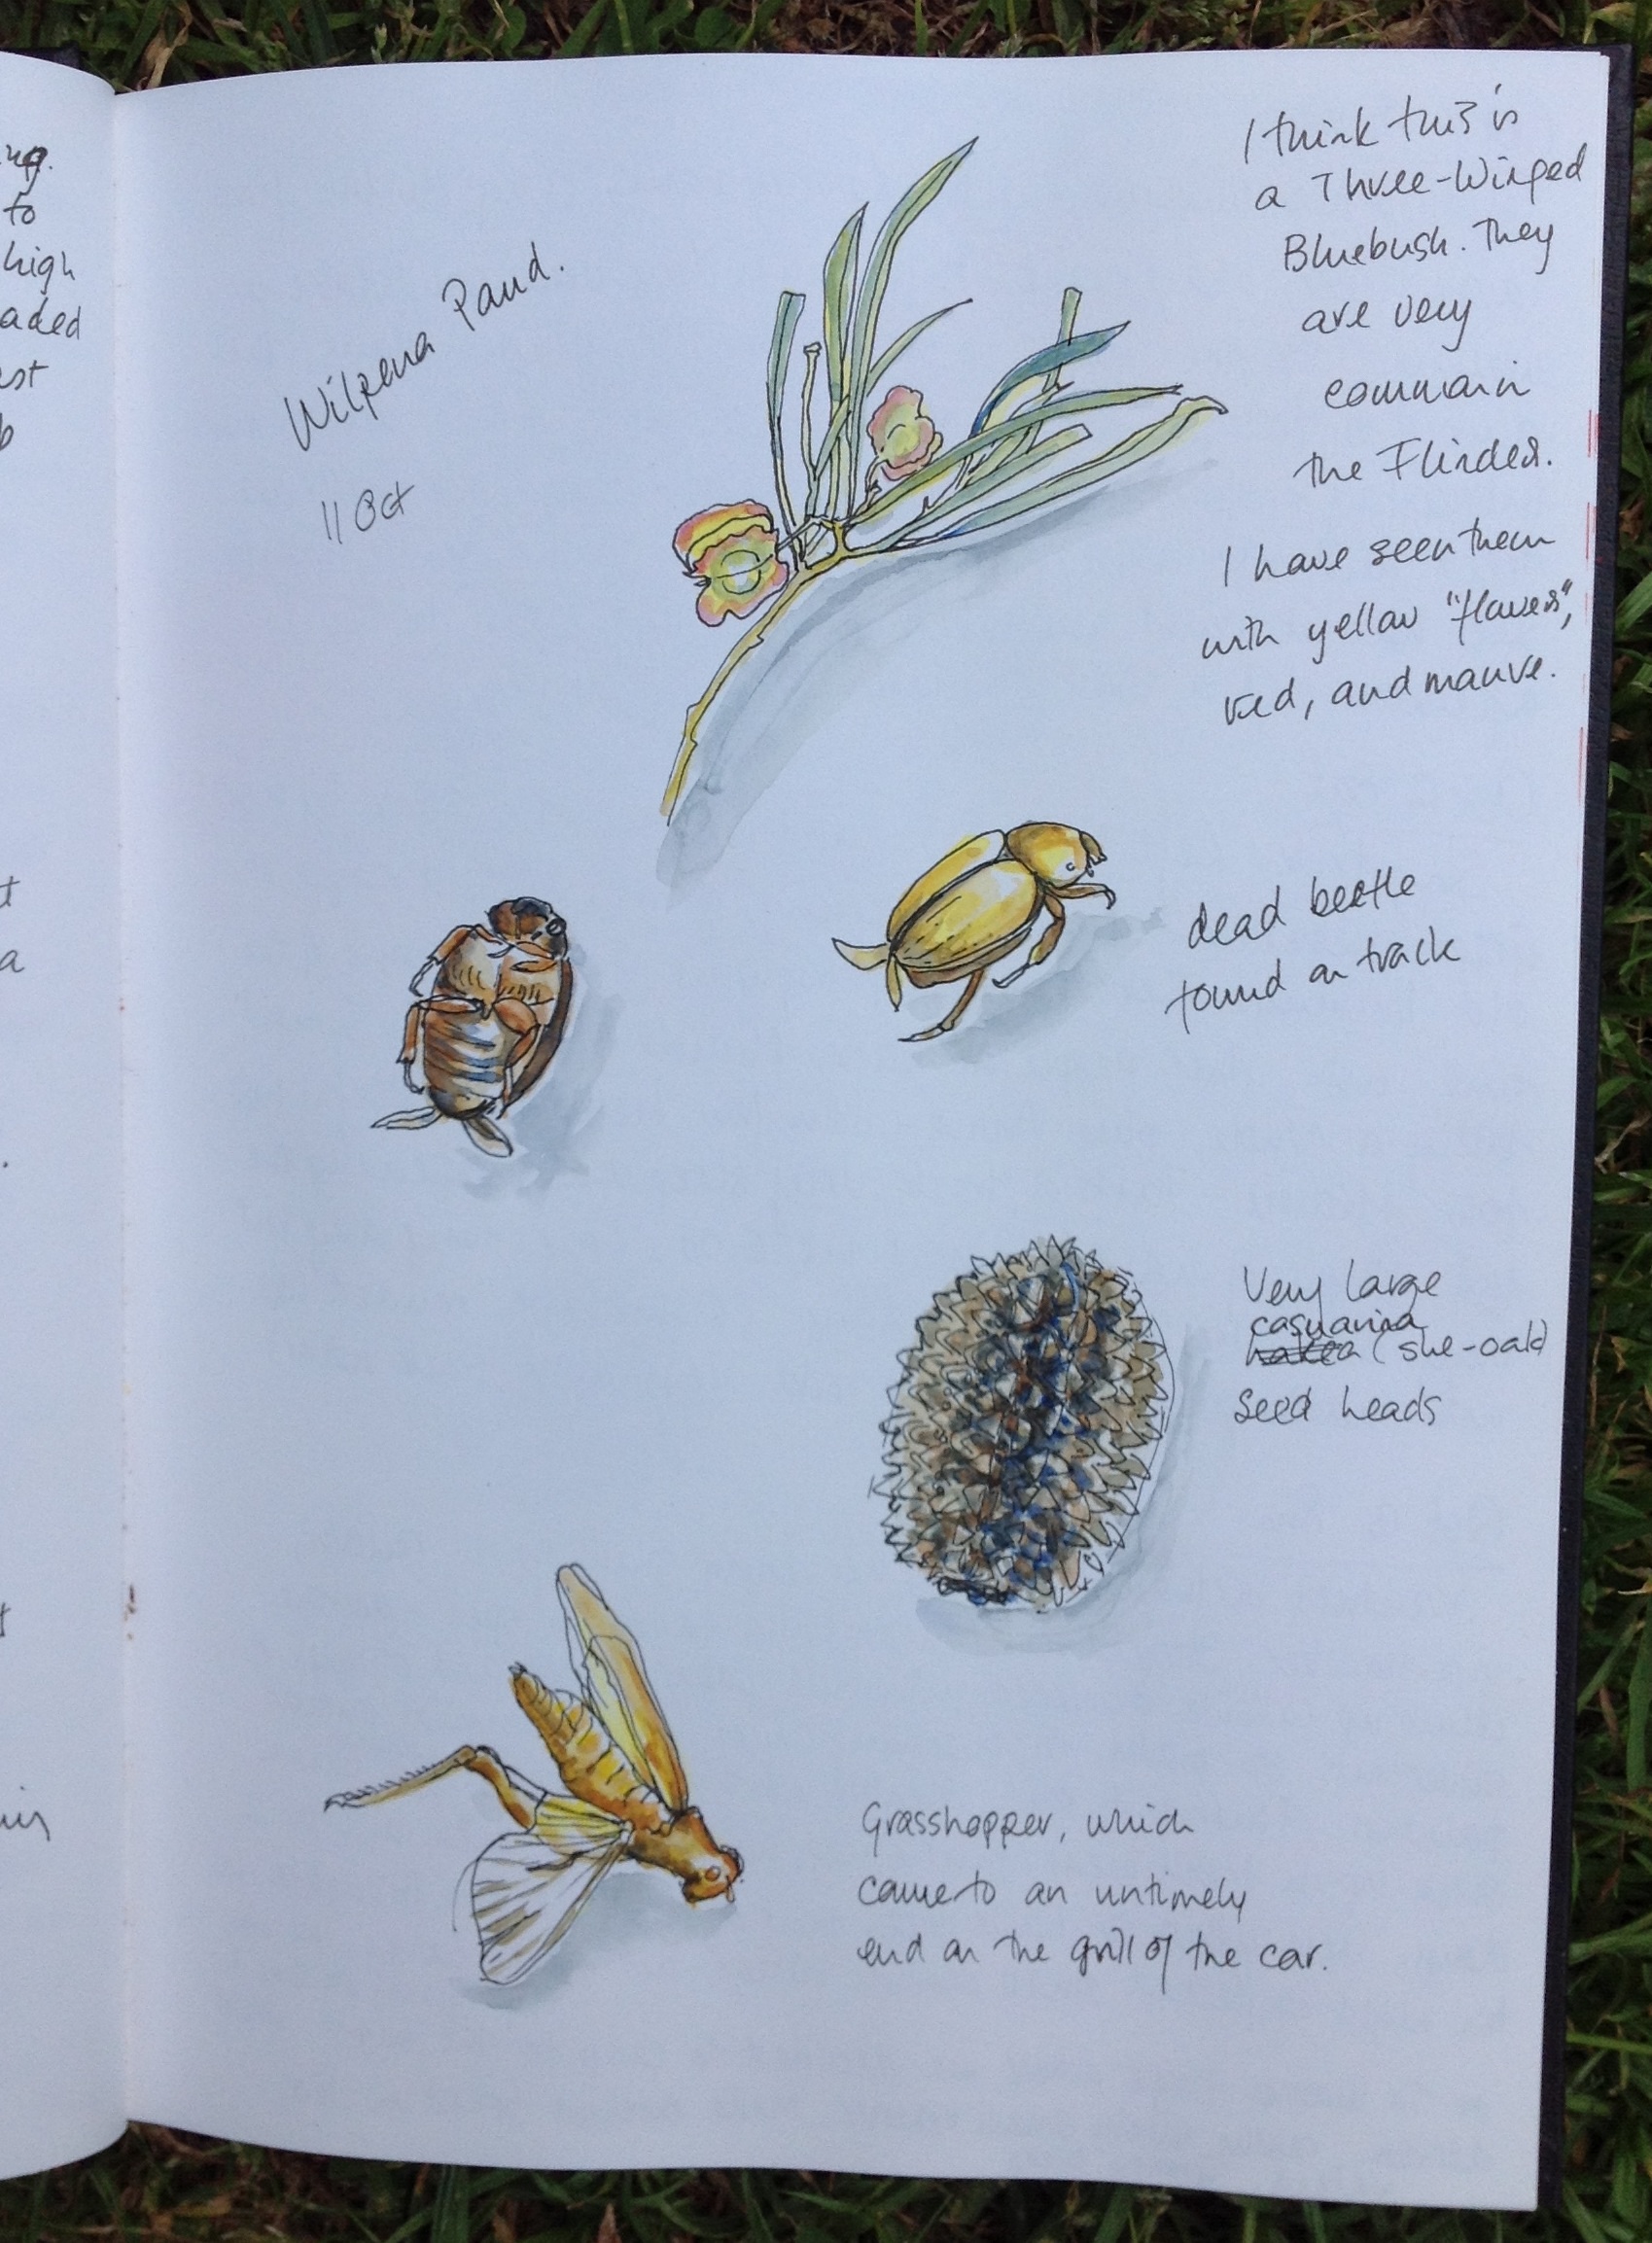 ng.
to
high
aded
st
Wilpena Pound.
11 Oct
I think this is
a Three-Winged
Bluebush. They
are very
common in
the Flinders.
I have seen them
with yellow "flowers",
red, and mauve.
dead beetle
found on track
Very large
casuarina
hakea (she-oak)
seed heads
Grasshopper, which
came to an untimely
end on the grill of the car.